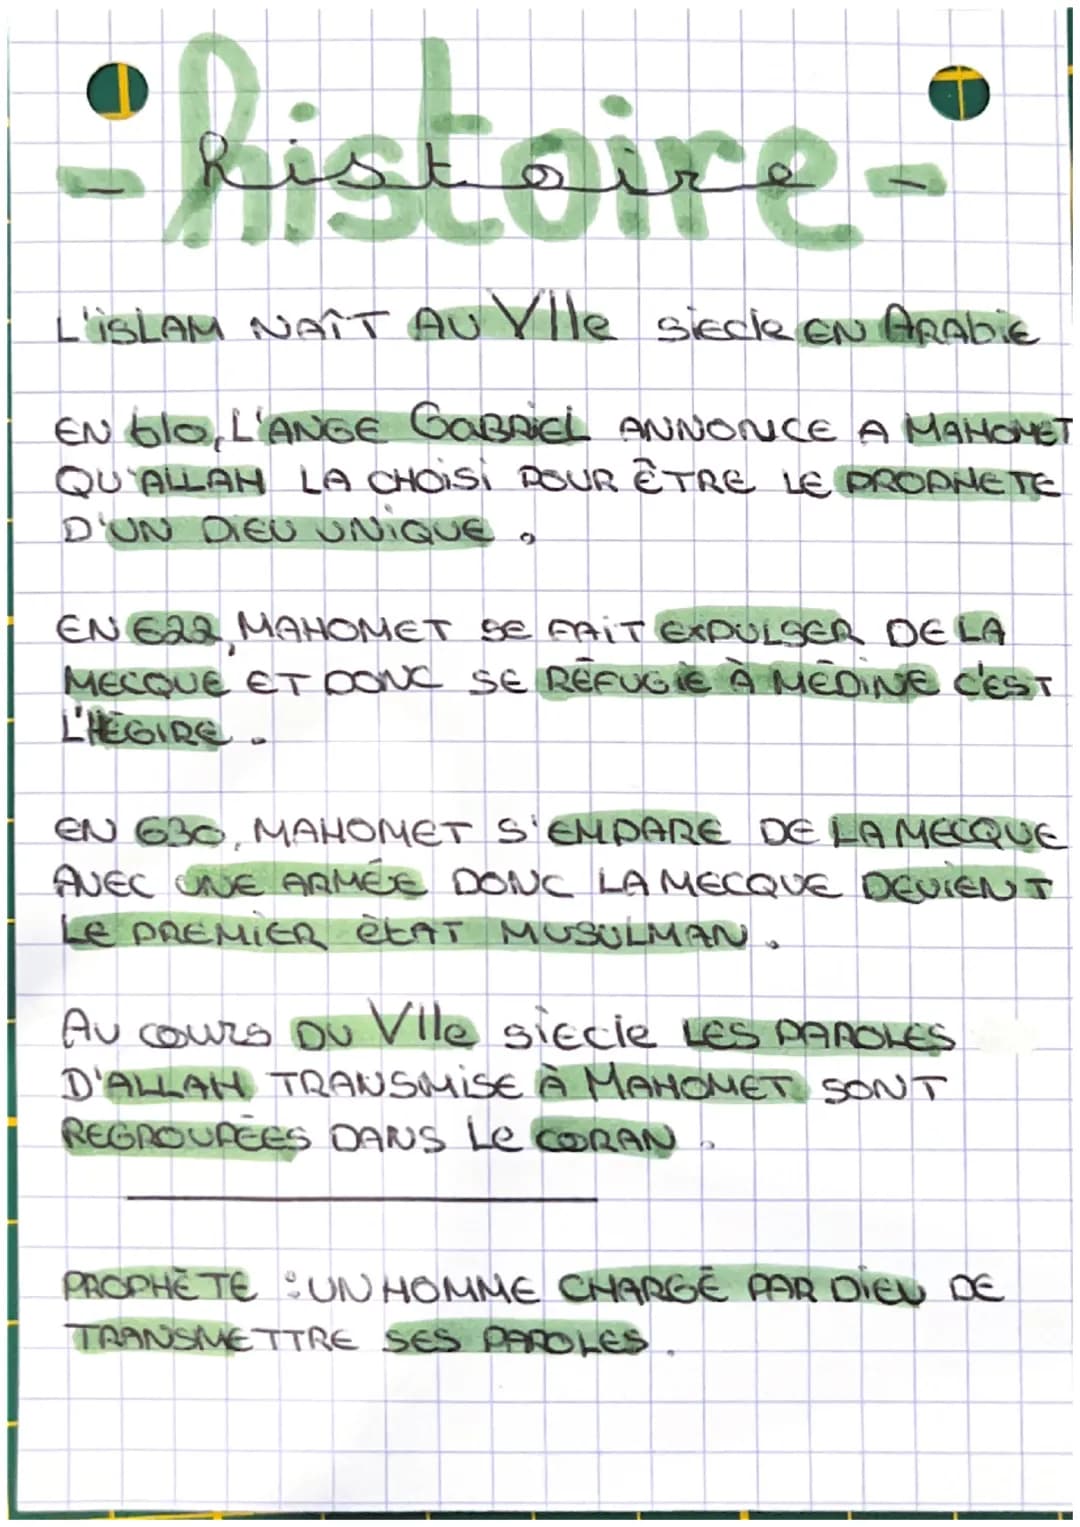 - histoire -
L'iSLAM NAÎT AU VIIe siecle EN ARAbiE
EN 610, L'ANGE GABRIEL ANNONCE A MAHOMET
QU'ALLAH LA CHOiSi POUR ÊTRE LE PROPHETE
D'UN DIEU UNIQUE.
EN 622, MAHOMET SE FAIT EXPULSER DE LA
MECQUE ET DONC SE RÉFUGIE À MÉDINE C'EST
L'HÉGIRE.
EN 630, MAHOMET S'EMPARE DE LA MECQUE
AVEC UNE ARMÉE DONC LA MECQUE DEVIENT
Le PREMIER ÉtAT MUSULMAN.
AU cours DU VIIe siècle LES PAROLES
D'ALLAH TRANSMISE À MAHOMET SONT
REGROUPÉES DANS Le CORAN.
PROPHÈTE : UN HOMME CHARGÉ PAR DIEU DE
TRANSMETTRE SES PAROLES.